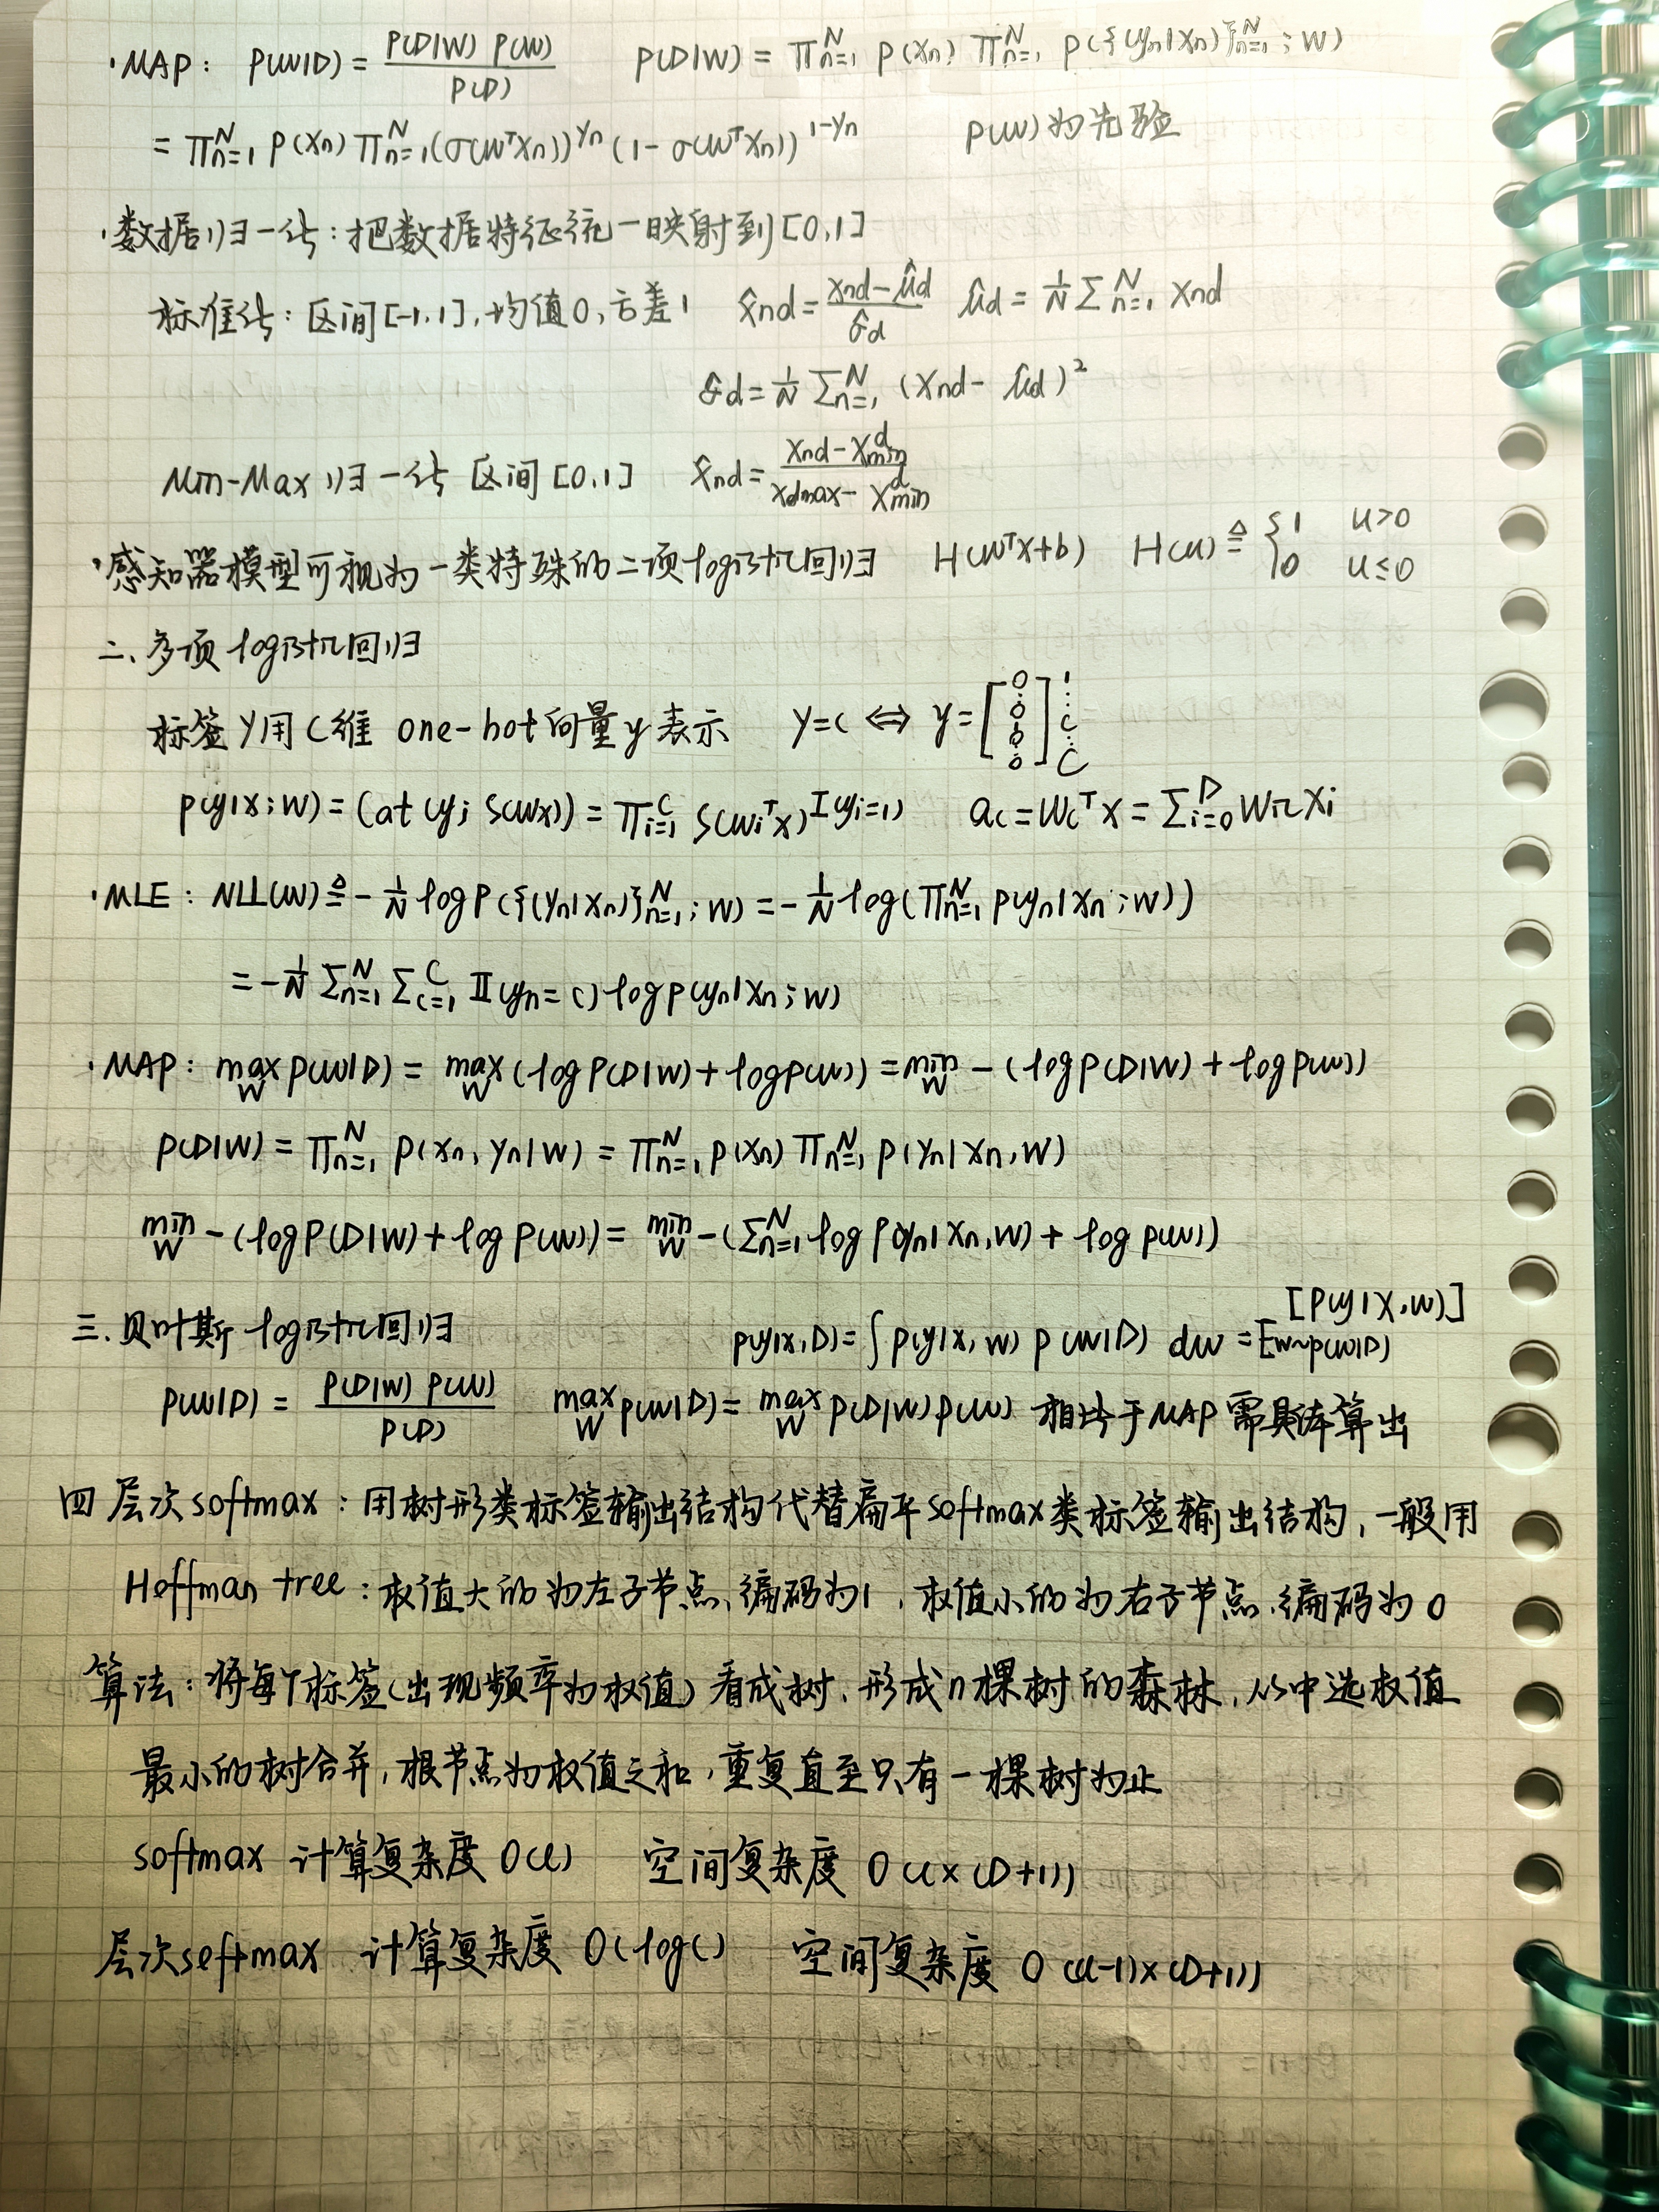 ·MAP: p(w|D) = p(D|w) p(w) / p(D) p(D|w) = Π_{n=1}^N p(xn) Π_{n=1}^N p({yn|xn}_{n=1}^N; w)
= Π_{n=1}^N p(xn) Π_{n=1}^N (σ(wᵀxn))^{yn} (1-σ(wᵀxn))^{1-yn} p(w)为先验
·数据归一化:把数据特征统一映射到[0,1]
标准化:区间[-1,1],均值0,方差1 x̂nd = (xnd-μ̂d)/σ̂d μ̂d = 1/N Σ_{n=1}^N xnd
σ̂d = 1/N Σ_{n=1}^N (xnd - μ̂d)²
Min-Max归一化 区间[0,1] x̂nd = (xnd - x^d_min)/(xdmax - x^d_min)
·感知器模型可视为一类特殊的二项logistic回归 H(wᵀx+b) H(u) ≜ {1 u>0
0 u≤0
二、多项logistic回归
标签y用C维 one-hot向量y表示 y=c ⇔ y=[0 ⋮ 0 ⋮ 0] 1 ⋮ c ⋮ C
p(y|x;w) = Cat(y; S(wx)) = Π_{i=1}^C S(wiᵀx)^{I(yi=1)} ac = wcᵀx = Σ_{i=0}^D wic xi
·MLE: NLL(w) ≜ -1/N log p({(yn|xn)}_{n=1}^N; w) = -1/N log(Π_{n=1}^N p(yn|xn;w))
= -1/N Σ_{n=1}^N Σ_{c=1}^C 𝕀(yn=c) log p(yn|xn;w)
·MAP: max_w p(w|D) = max_w (log p(D|w) + log p(w)) = min_w -(log p(D|w) + log p(w))
p(D|w) = Π_{n=1}^N p(xn, yn|w) = Π_{n=1}^N p(xn) Π_{n=1}^N p(yn|xn,w)
min_w -(log p(D|w) + log p(w)) = min_w -(Σ_{n=1}^N log p(yn|xn,w) + log p(w))
三.贝叶斯logistic回归 p(y|x,D) = ∫ p(y|x,w) p(w|D) dw = E_{w~p(w|D)} [p(y|x,w)]
p(w|D) = p(D|w) p(w) / p(D) max_w p(w|D) = max_w p(D|w)p(w) 相比于MAP需具体算出
四 层次softmax:用树形类标签输出结构代替扁平softmax类标签输出结构,一般用
Hoffman tree:权值大的为左子节点、编码为1,权值小的为右子节点,编码为0
算法:将每个标签(出现频率为权值)看成树,形成n棵树的森林,从中选权值
最小的树合并,根节点为权值之和,重复直至只有一棵树为止
softmax 计算复杂度 O(C) 空间复杂度 O(C×(D+1))
层次softmax 计算复杂度 O(logC) 空间复杂度 O((C-1)×(D+1))